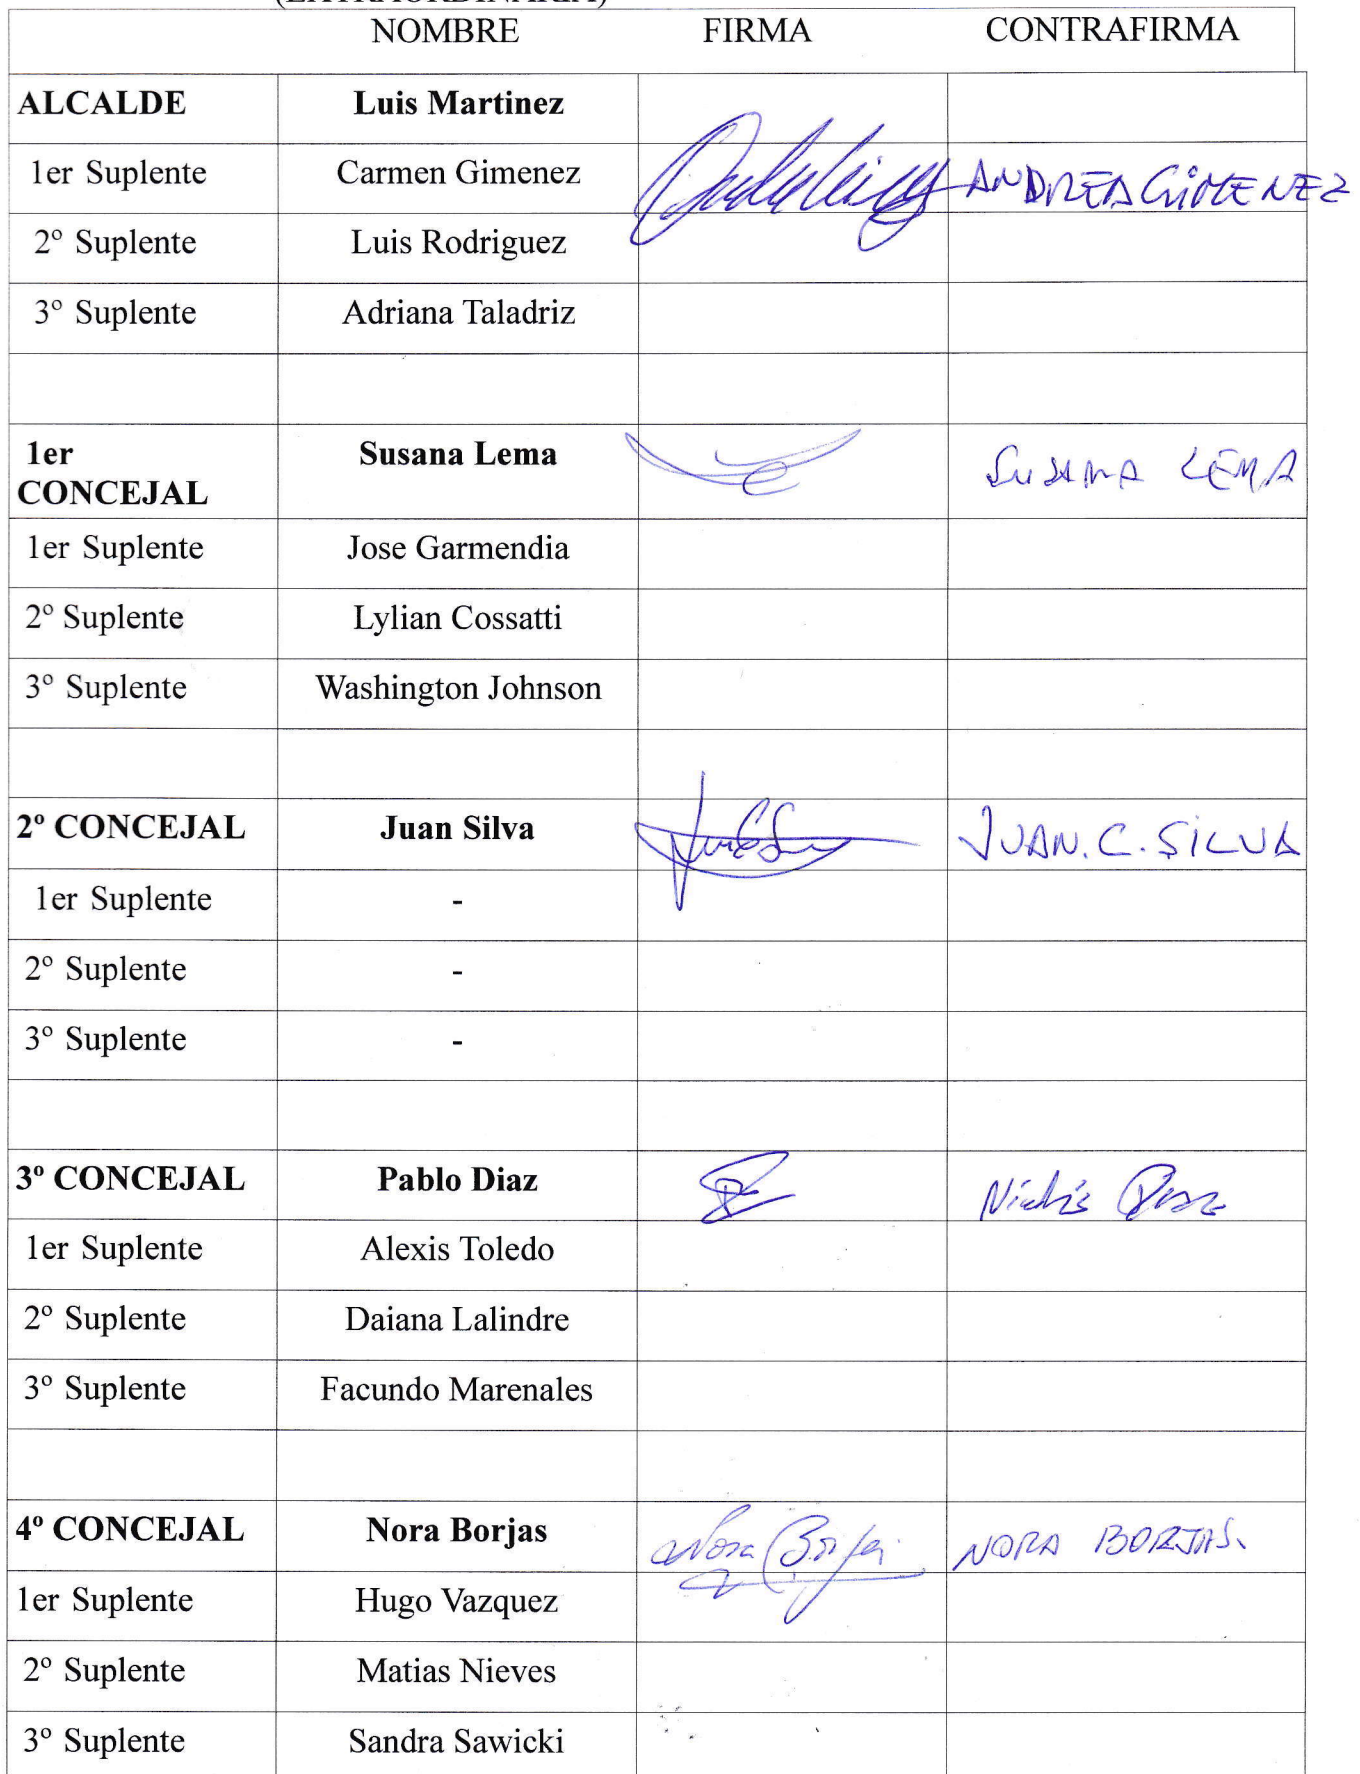 (EXTRAORDINARIA)
NOMBRE FIRMA CONTRAFIRMA
ALCALDE Luis Martinez
1er Suplente Carmen Gimenez ANDREA GIMENEZ
2º Suplente Luis Rodriguez
3º Suplente Adriana Taladriz
1er Susana Lema SUSANA LEMA
CONCEJAL
1er Suplente Jose Garmendia
2º Suplente Lylian Cossatti
3º Suplente Washington Johnson
2º CONCEJAL Juan Silva JUAN. C. SILVA
1er Suplente -
2º Suplente -
3º Suplente -
3º CONCEJAL Pablo Diaz
1er Suplente Alexis Toledo
2º Suplente Daiana Lalindre
3º Suplente Facundo Marenales
4º CONCEJAL Nora Borjas Nora Borjas NORA BORJAS.
1er Suplente Hugo Vazquez
2º Suplente Matias Nieves
3º Suplente Sandra Sawicki